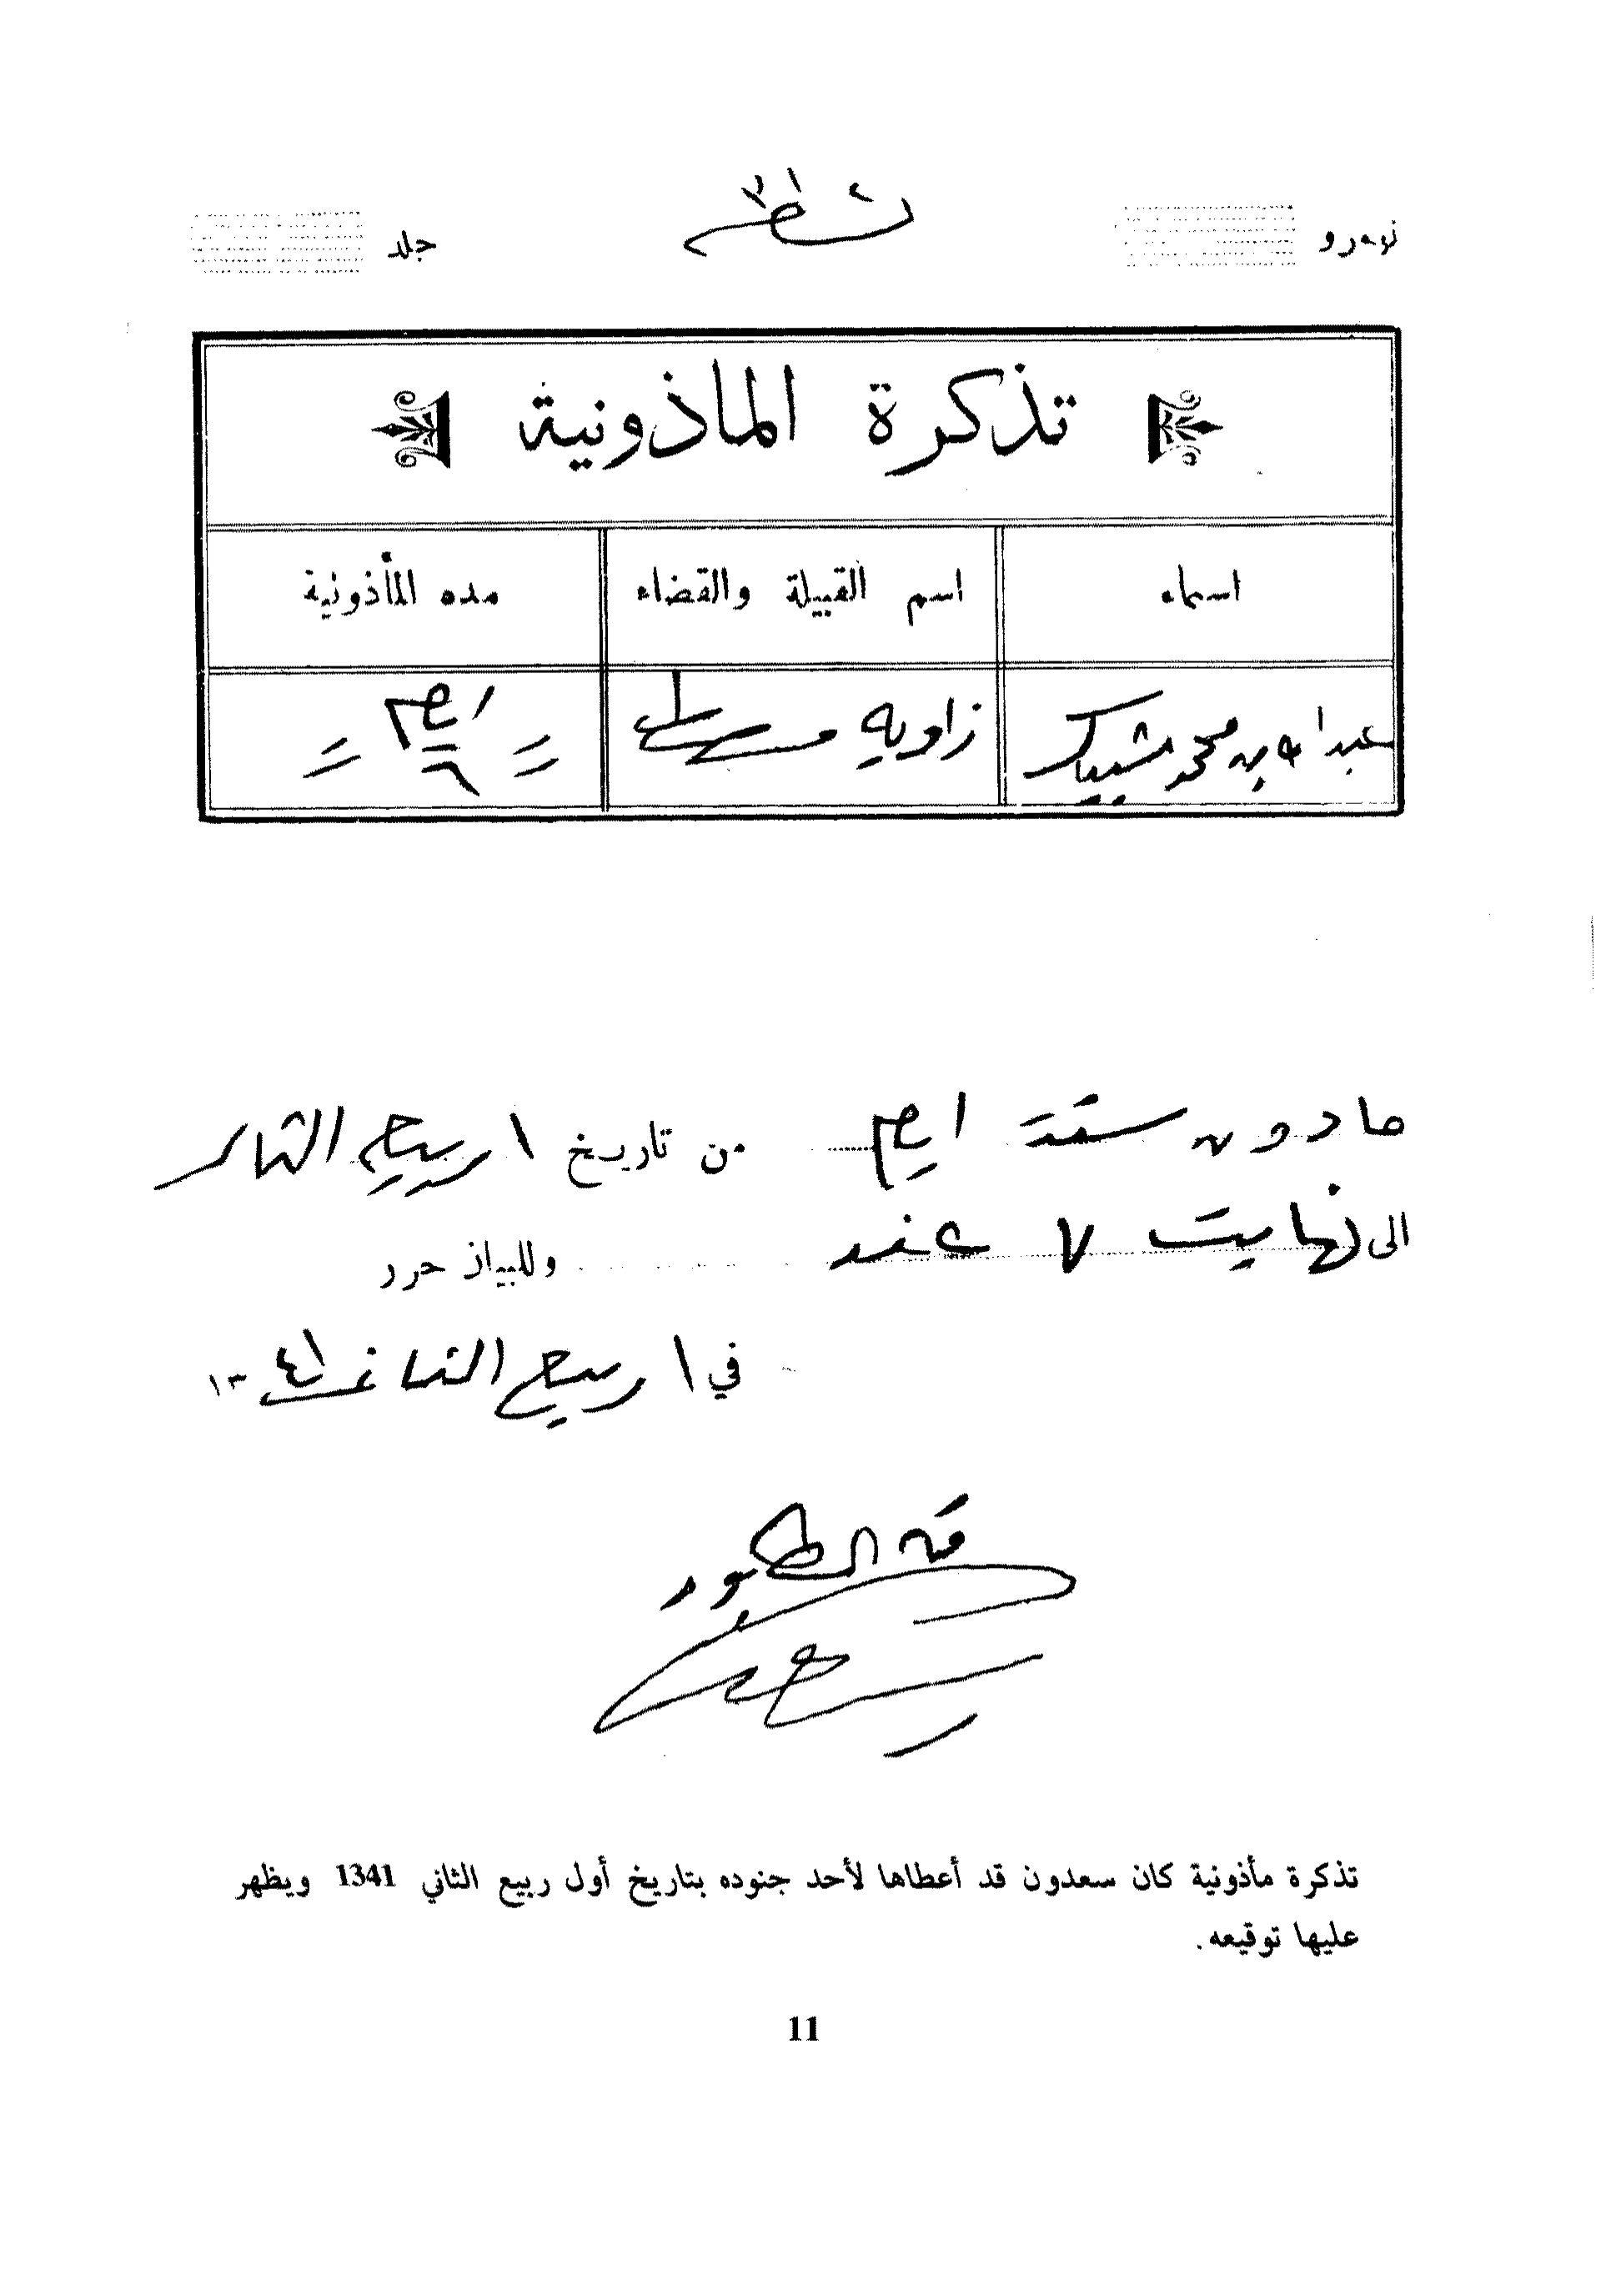 نومرو
جلد
تذكرة المأذونية
اسماء
اسم القبيلة والقضاء
مده المأذونية
عبدالله بن محمد شبيك
زاويه
ايام
٦
مادون ستة ايام من تاريخ ١ ربيع الثاني
الى نهايت ٧ عنه وللبيان حرر
في ١ ربيع الثاني ١٣٤١
الطابور
تذكرة مأذونية كان سعدون قد أعطاها لأحد جنوده بتاريخ أول ربيع الثاني 1341 ويظهر
عليها توقيعه.
11